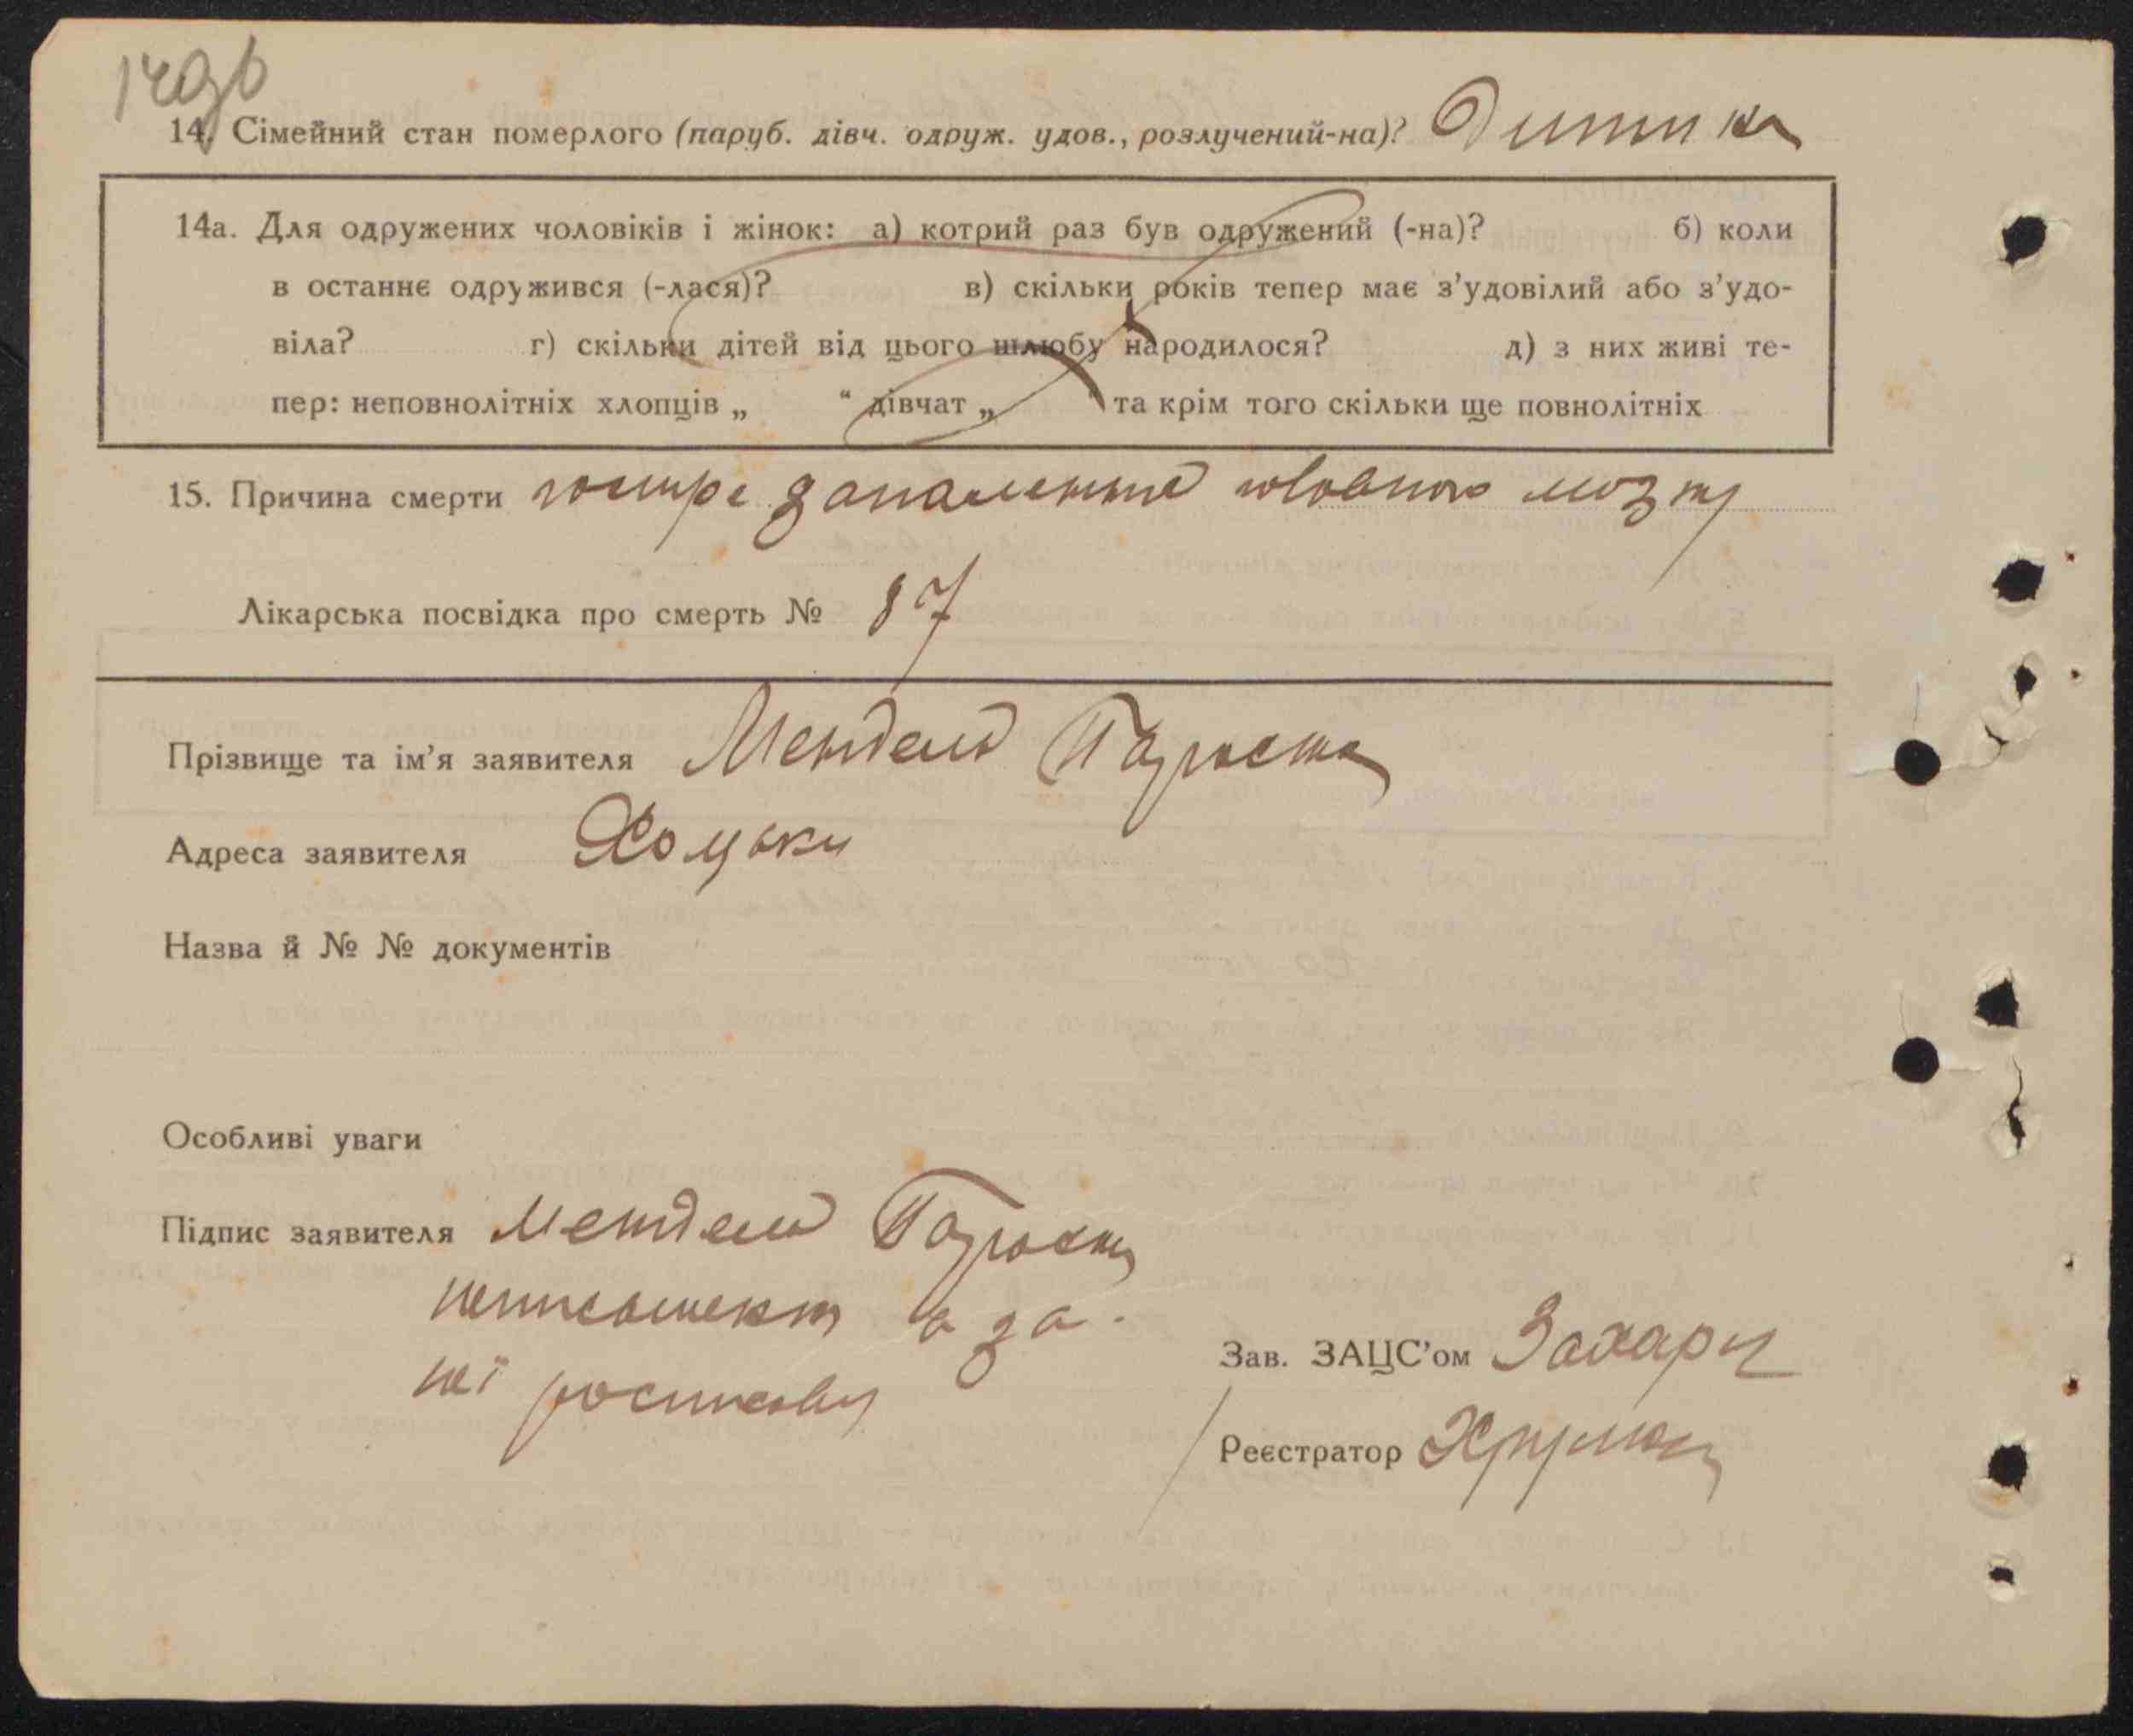 14. Сімейний стан померлого (паруб. дівч. одруж. удов., розлучений-на)? Дитина
14а. Для одружених чоловіків і жінок: а) котрий раз був одружений (-на)? б) коли
в останнє одружився (-лася)? в) скільки років тепер має з’удовілий або з’удо-
віла? г) скільки дітей від цього шлюбу народилося? д) з них живі те-
пер: неповнолітніх хлопців „ “ дівчат „ “ та крім того скільки ще повнолітніх
15. Причина смерти гостре запалення головного мозку
Лікарська посвідка про смерть № 87
Прізвище та ім’я заявителя Мендель
Адреса заявителя Хомуки
Назва й № № документів
Особливі уваги
Підпис заявителя Мендель
а за
неї
Зав. ЗАЦС’ом Захарц
Реєстратор